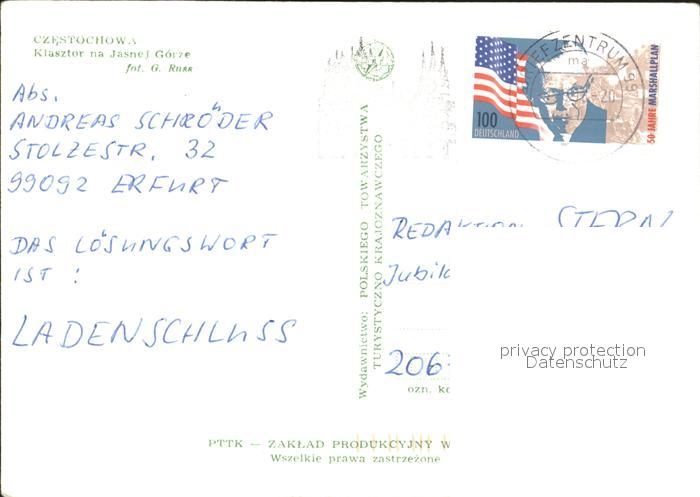 CZĘSTOCHOWA
Klasztor na Jasnej Górze
fot. G. Russ
Abs.
ANDREAS SCHRÖDER
STOLZESTR. 32
99092 ERFURT
DAS LÖSUNGSWORT
IST :
LADENSCHLUSS
Wydawnictwo: POLSKIEGO TOWARZYSTWA
TURYSTYCZNO KRAJOZNAWCZEGO
100
DEUTSCHLAND
50 JAHRE MARSHALLPLAN
BRIEFZENTRUM 99
ma
REDAKTION
206
ozn. ko
privacy protection
Datenschutz
PTTK — ZAKŁAD PRODUKCYJNY W
Wszelkie prawa zastrzeżone